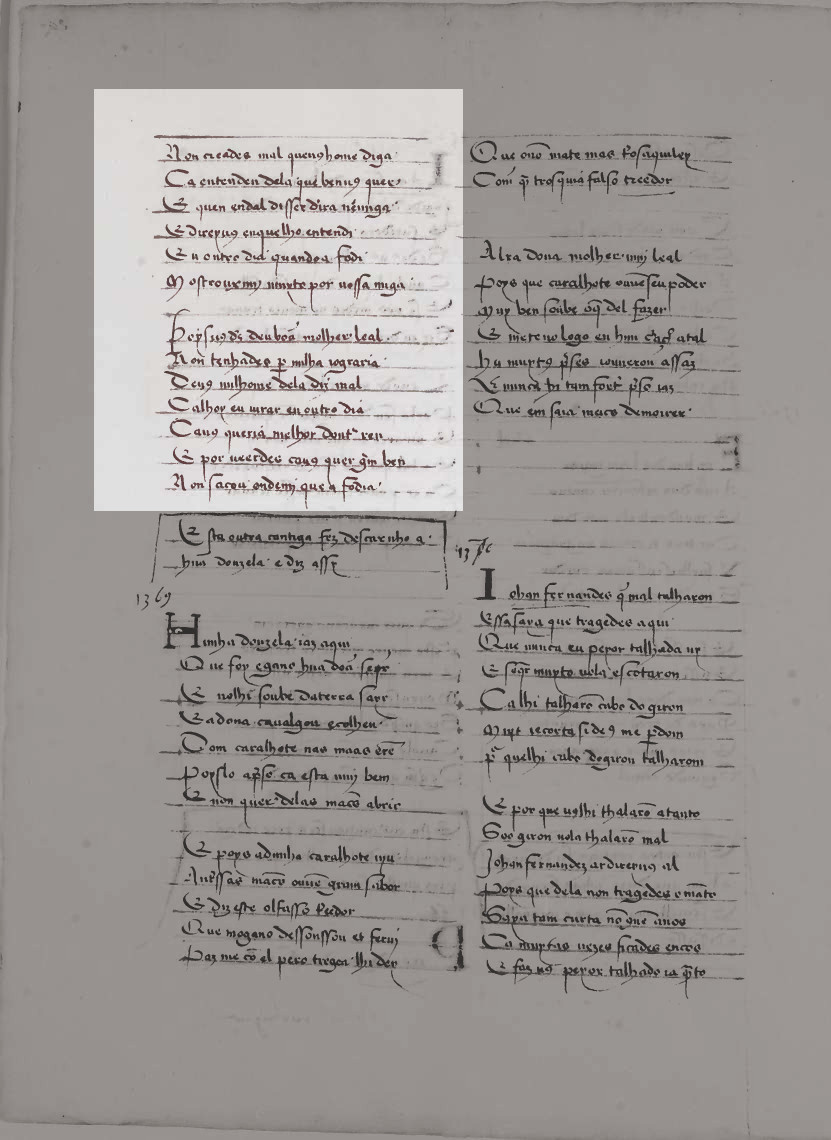 Non creades mal quenꝯ home diga
Ca entenden dela que benuꝯ quer
E quen endal disser dira nẽmiga
E direyuꝯ enquelho entendi
Eu outro dia quandoa fodi
Mostrouxemj muyto por uossa miga

Poys uꝯ dꝫ deu bõa molher leal
Non tenhades ꝑ milha iograria
Deuꝯ nulhome dela diz mal
Calhoy eu iurar en outro dia
Cauꝯ queria melhor dout rem
E por ueerdes cauꝯ quer grm ben
Non sacou ondemj que a fodia

Esta outra cantiga fez descarnho a
hũa donzela e diz assy
1369
Hunha donzela iaz aqui
Que foy ogano hũa doã seruir
E nolhi soube daterra sayr
E a dona caualgou e colheu
Dom caralhote nas maãs
Poyslo apso ca esta mĩj bem
E non quer delas maãs abrir

E poys adonha caralhote uyu
Antressas maãs ouue gram sabor
E diz este o falsso
Que mogano dessonssou et feriu
Praz me cõ el pero tregoa lhi dey

Que ono mate mas trosquilley
Com qͣ trosquia falso treedor

Alra dona molher mui leal
Poys que caralhote ouue seu poder
Muy ben soube o que del fazer
E meteuo logo en hũu atal
Hu muytꝯ pses iouueron assaz
E nunca hi tam fort pso iaz
Que em saya meos de morrer

1370
Iohan fernandes qͥ mal talharon
Essa saya que tragedes aqui
Que nunca eu peyor talhada ui
E seqr muyto uola escotaron
Ca lhi talharõ cabo do giron
Muyt e corta si deꝯ me ꝑdom
pͥ quelhi cabo do giron talharom

E por que uolhi thalarõ atanto
Soo giron uola thalarõ mal
Johan fernandez ar direyuꝯ al
Poys que dela non tragedes o mãto
Saya tam curta nõ quẽ anos
Ca muytas uezes ficades encos
E faz uꝯ peyor talhado ia qͣto